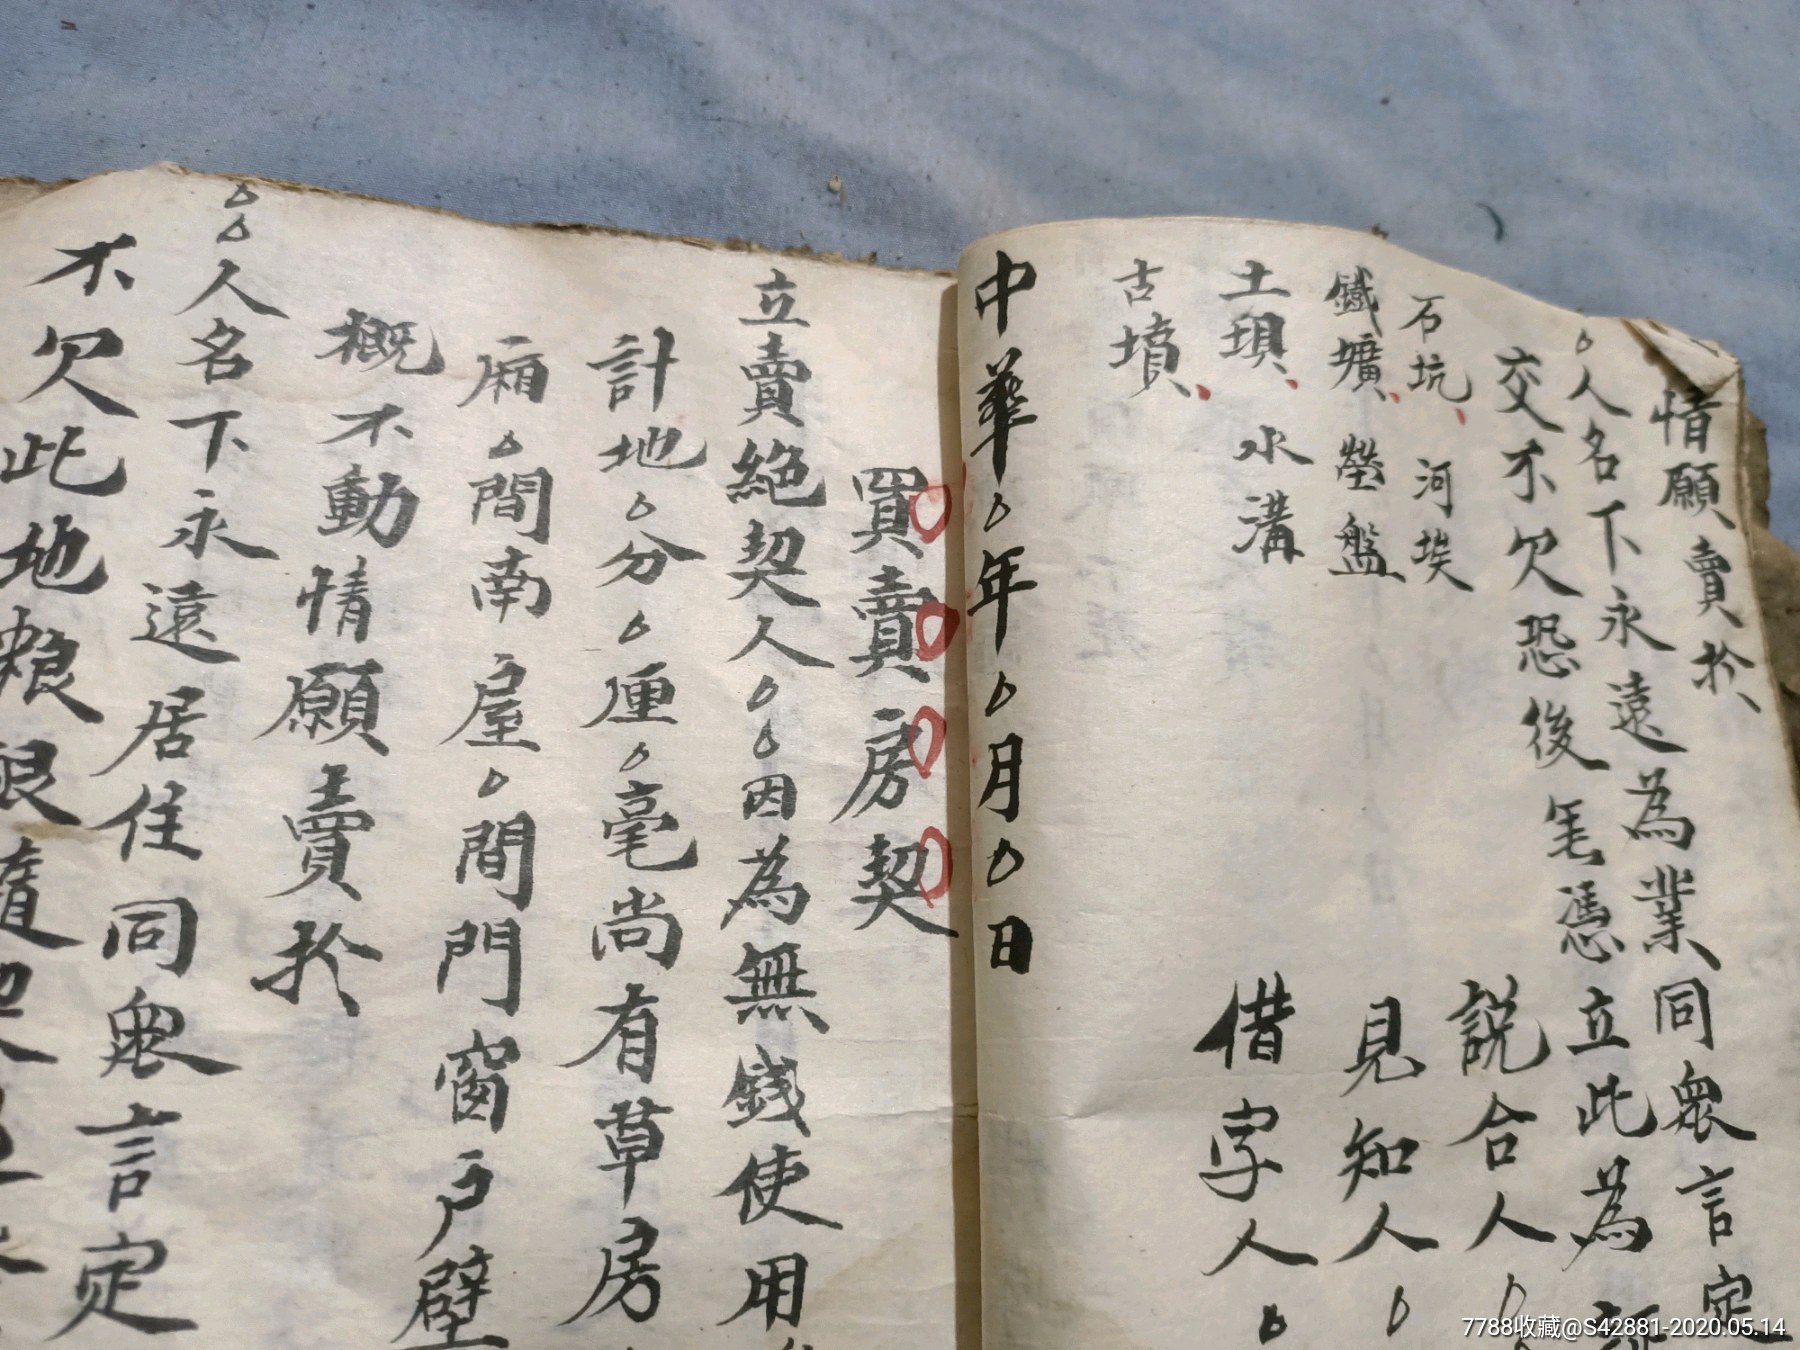 情願賣於
○人名下永遠為業同衆言定
交不欠恐後無憑立此為証
說合人○
見知人○
借字人○
石坑 河埃
鐵壙 塋盤
土垻 水溝
古墳
中華○年○月○日
買賣房契
立賣絕契人○○因為無錢使用
計地○分○厘○毫尚有草房
廂○間南屋○間門窗戶壁
概不動情願賣於
○○人名下永遠居住同衆言定
不欠此地粮銀隨
7788收藏@S42881-2020.05.14